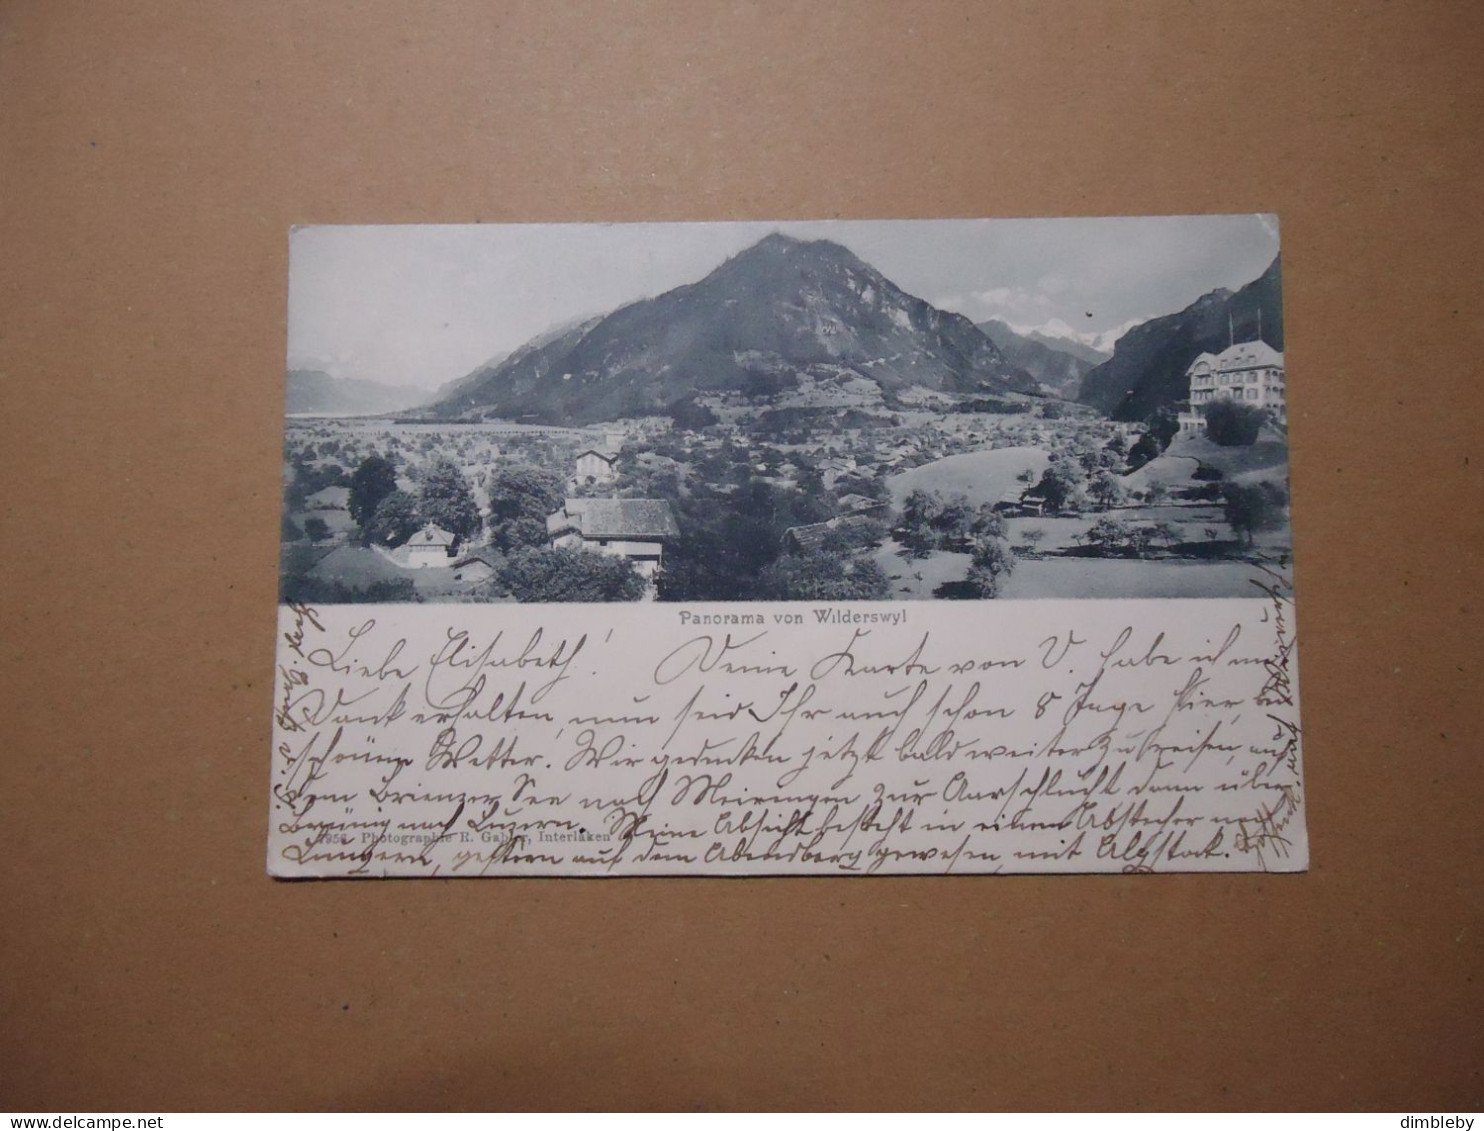 Panorama von Wilderswyl
Liebe Elisabeth! Deine Karte von V. habe ich mit
Dank erhalten, nun seid Ihr auch schon 8 Tage hier, bei
schönem Wetter. Wir gedenken jetzt bald weiterzureisen, auch
dem Brienzer See nach Meiringen zur Aarschlucht dann über
Brünig nach Luzern. Meine Absicht besteht in einem Abstecher nach
1956. Photographie R. Gabler, Interlaken
Lungern, gestern auf dem Abendberg gewesen, mit Alpstock.
delcampe.net
dimbleby